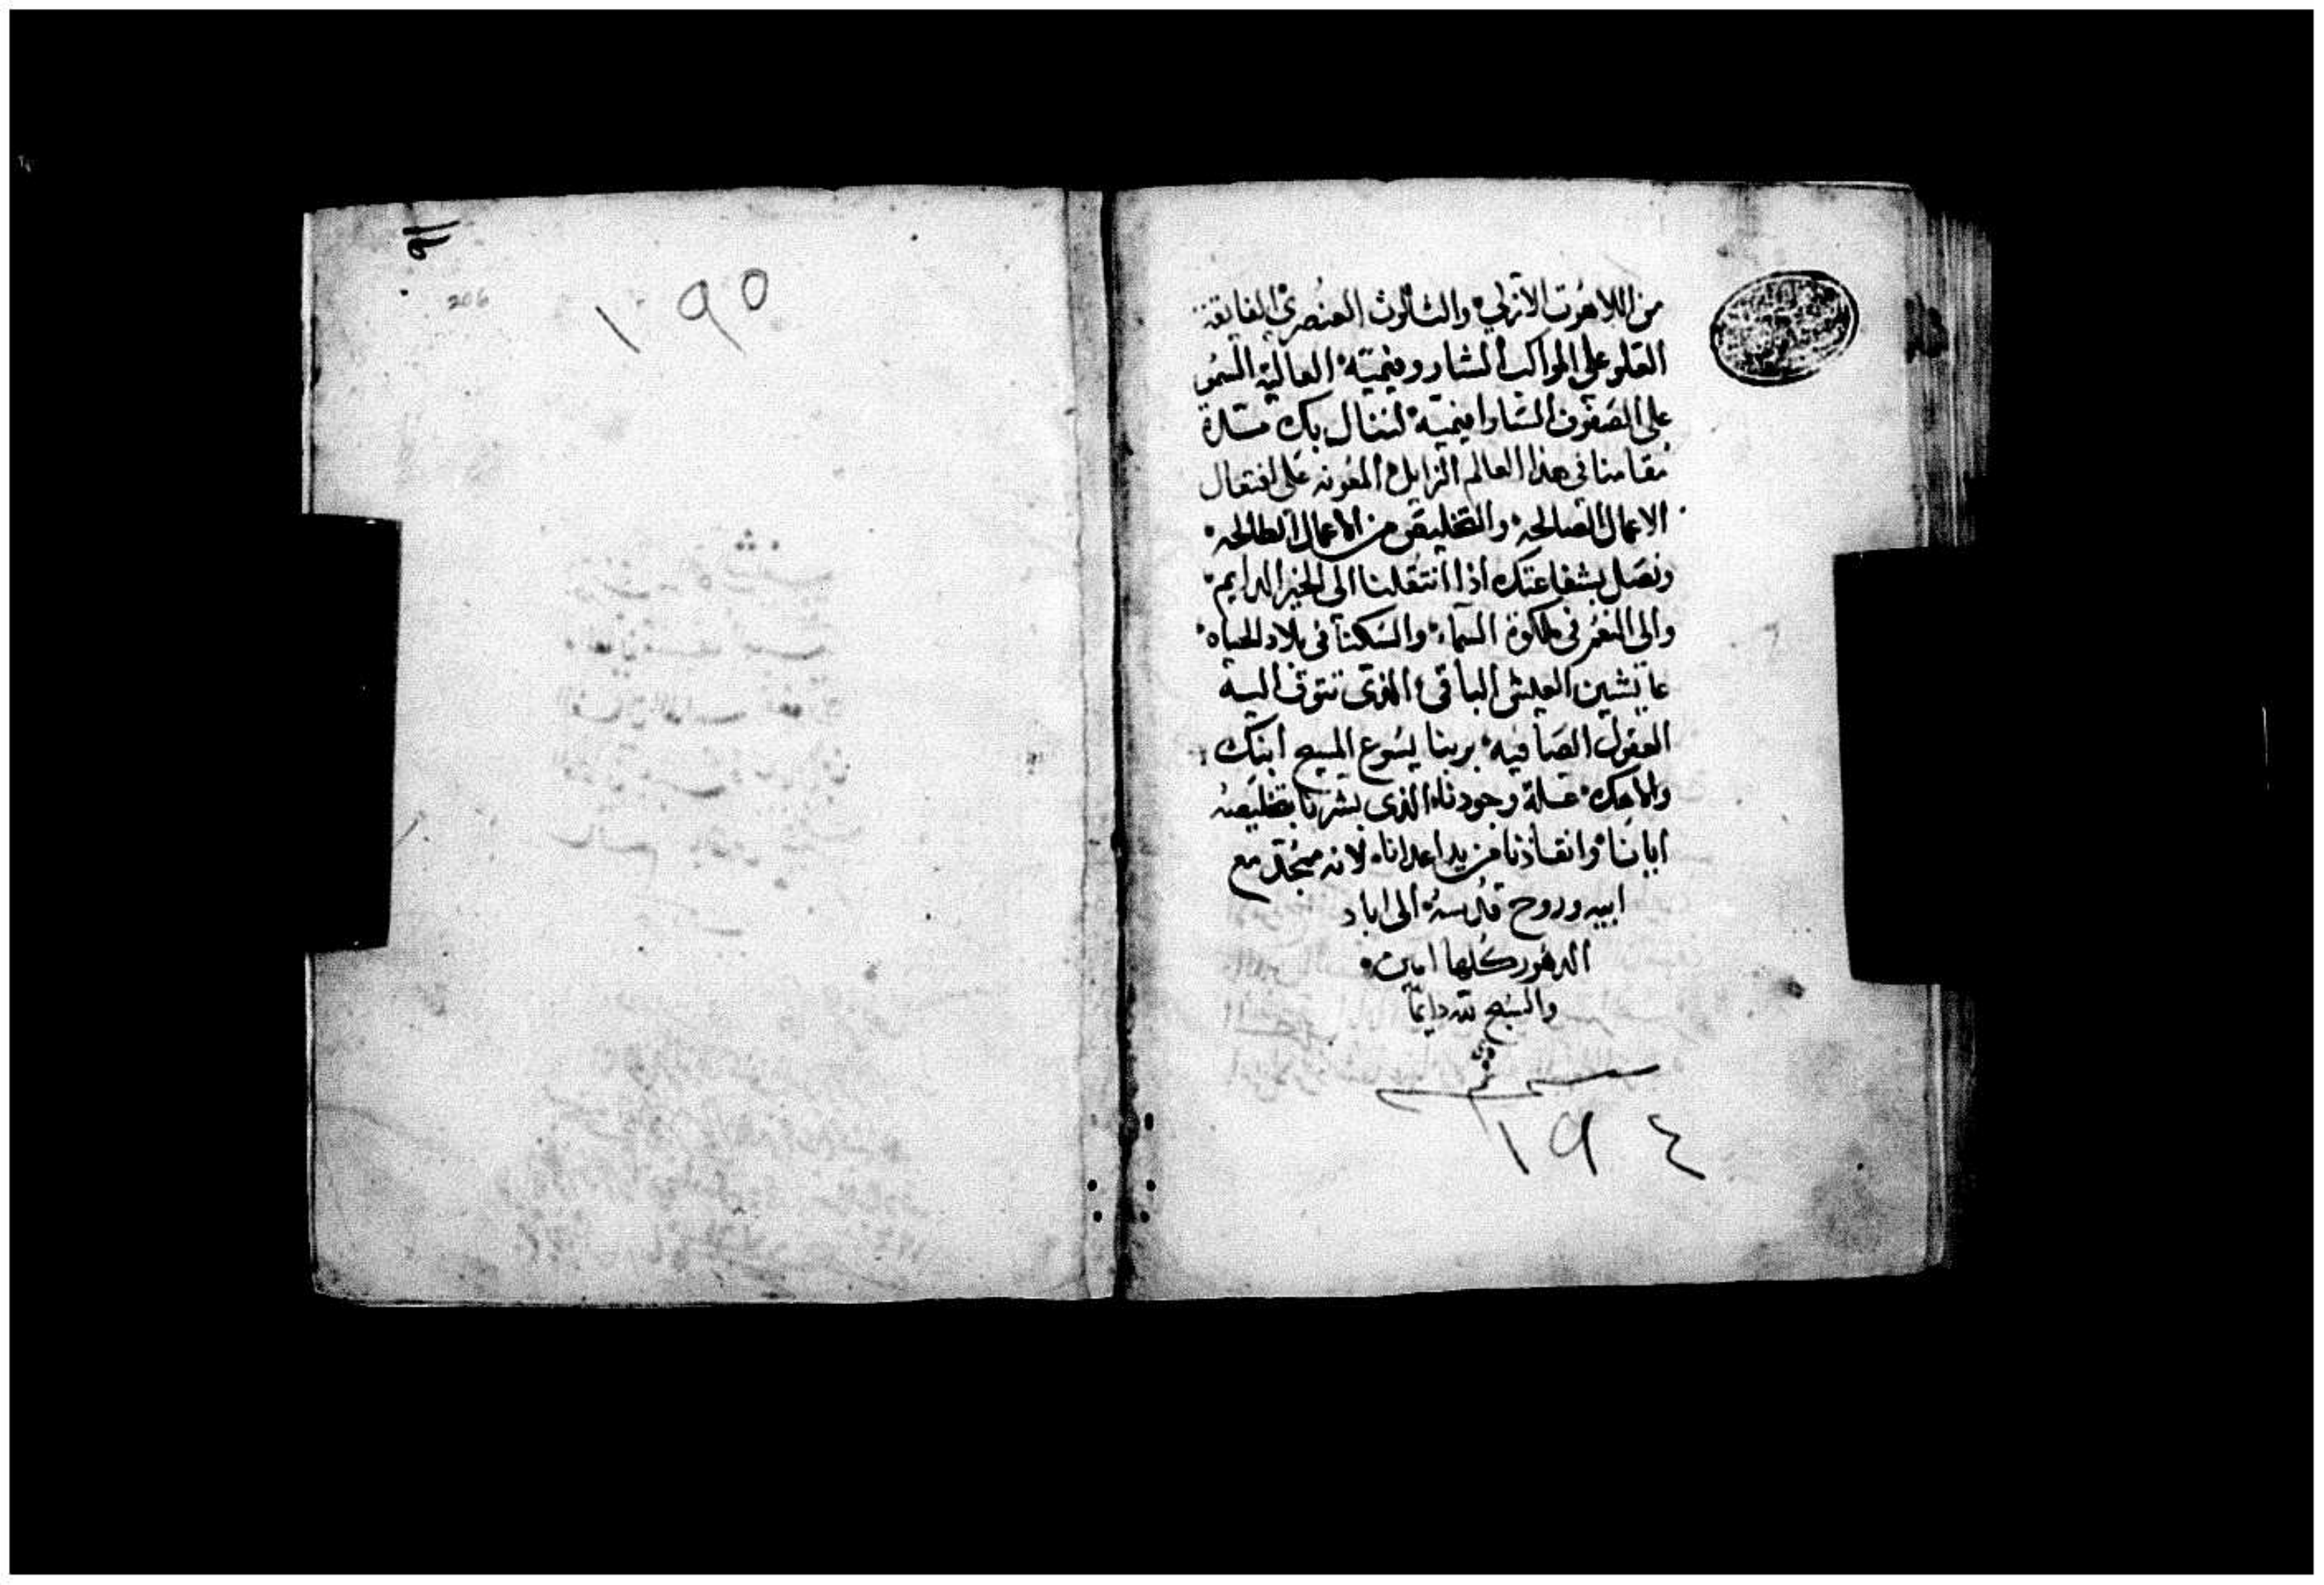 من اللاهوت الازلي والثالوث العنصري الفايقة
العلو على المواكب الشاروفيمية العالية السمو
على الصفوف السارافيمية لننال بك مدة
مقامنا في هذا العالم الزايل المعونه على افتعال
الاعمال الصالحه والتخليص من الاعمال الطالحه
ونصل بشفاعتك اذا انتقلنا الى الخير الدايم
والى في ملكوة السماء والسكنا في بلاد الحياه
عايشين العيش الباقي الذي تتوق اليه
العقول الصافيه بربنا يسوع المسيح ابنك
والاهك علة وجودنا الذي بشرنا بتخليصه
ابانا وانقاذنا من يد اعدانا لانه ممجد مع
ابيه وروح قدسه الى اباد
الدهور كلها امين
والسبح لله دايما
١٩٤
١٩٥
206